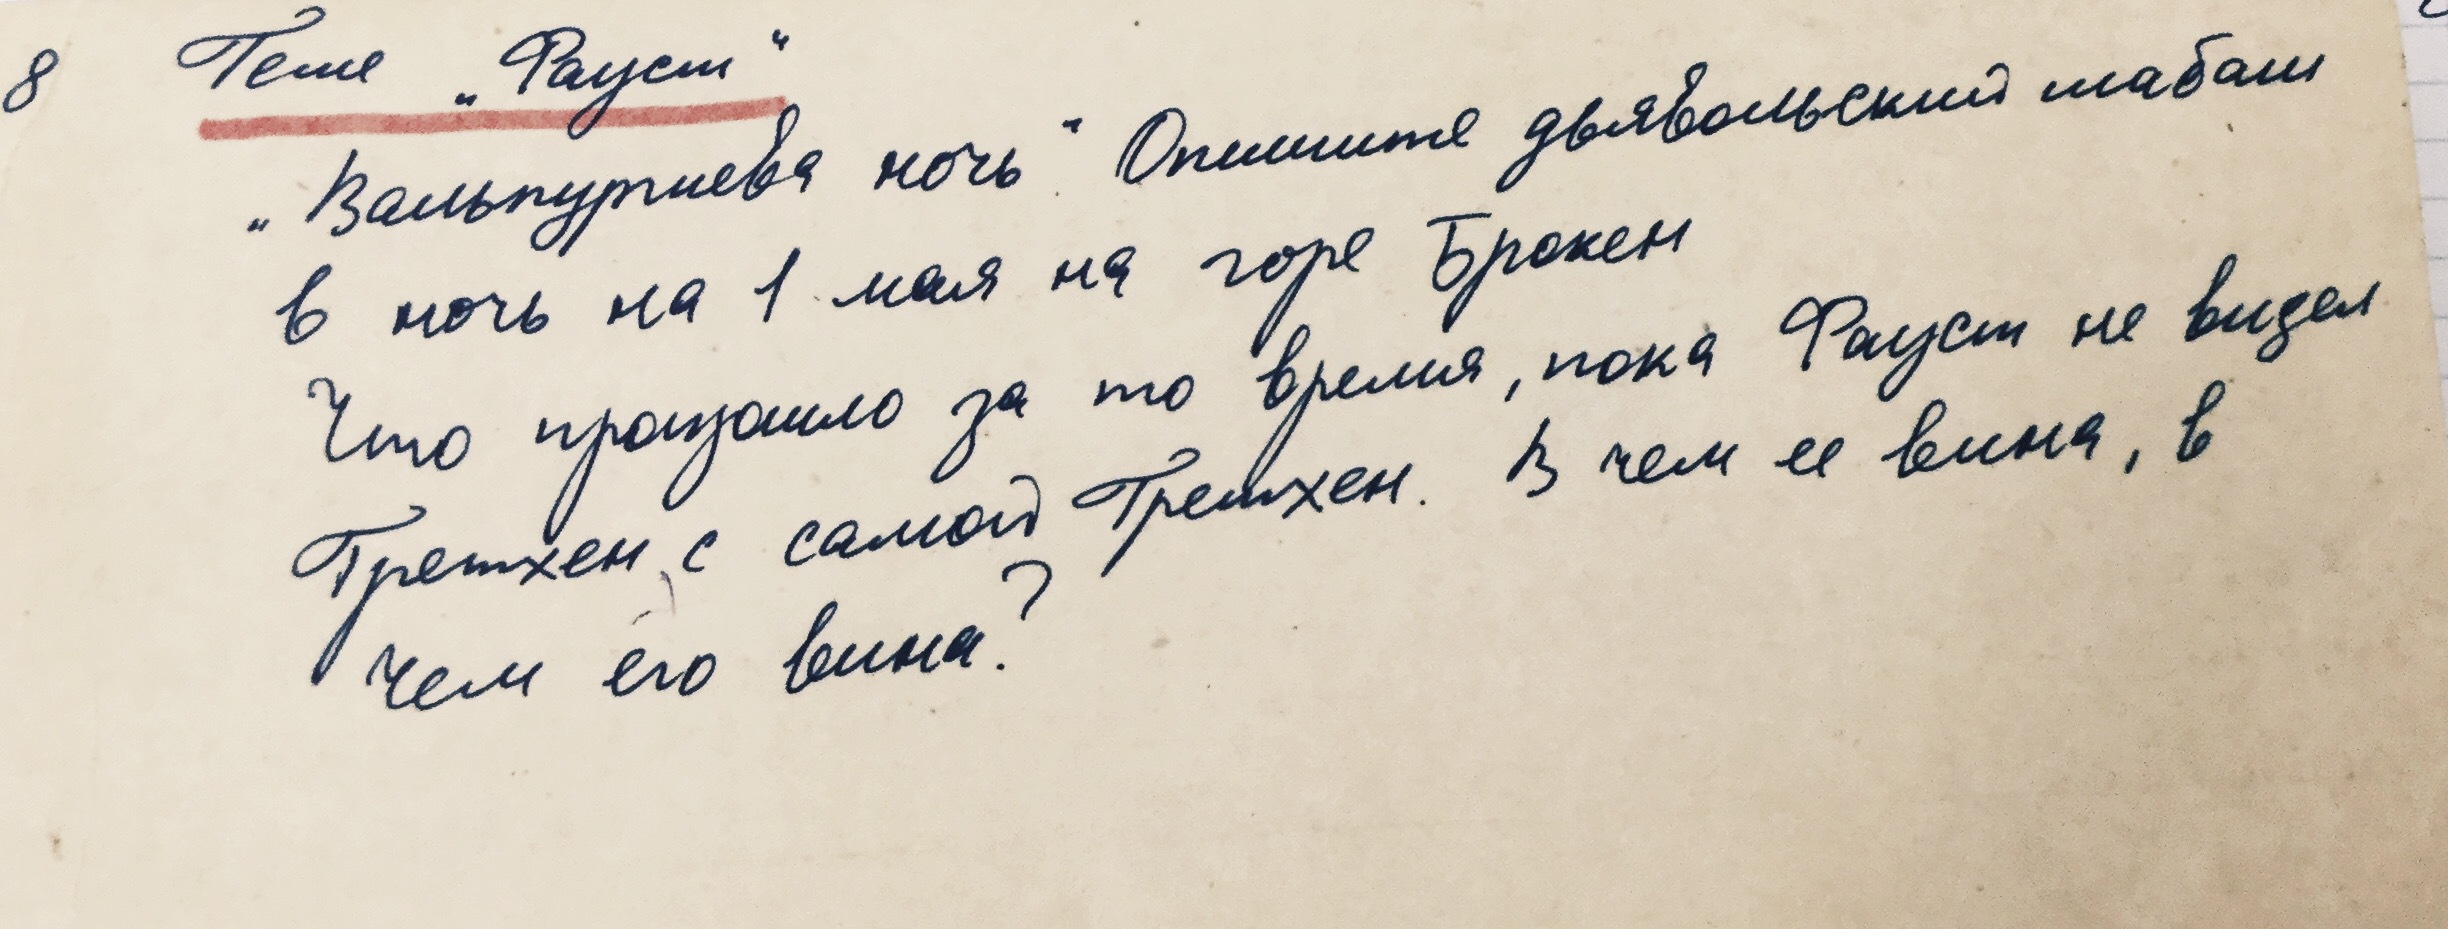 8 Гете „Фауст“
„Вальпургиева ночь“ Опишите дьявольский шабаш
в ночь на 1 мая на горе Брокен
Что произошло за то время, пока Фауст не видел
Гретхен, с самой Гретхен. В чем ее вина, в
чем его вина?